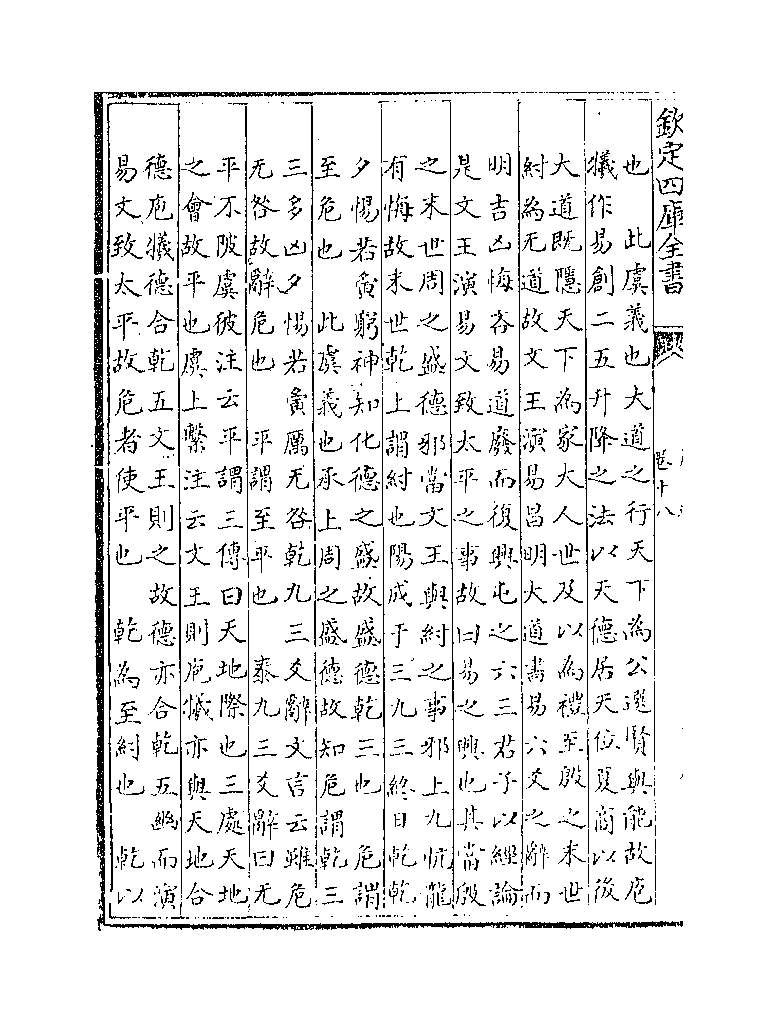 欽定四庫全書
卷十八
也　此虞義也大道之行天下為公選賢與能故庖
犧作易創二五升降之法以天德居天位夏商以後
大道既隱天下為家大人世及以為禮至殷之末世
紂為无道故文王演易昌明大道書易六爻之辭而
明吉凶悔吝易道廢而復興屯之六三君子以經論
是文王演易文致太平之事故曰易之興也其當殷
之末世周之盛德邪當文王與紂之事邪上九忼龍
有悔故末世乾上謂紂也陽成于三九三終日乾乾
夕惕若夤窮神知化德之盛故盛德乾三也　危謂
至危也　此虞義也承上周之盛德故知危謂乾三
三多凶夕惕若夤厲无咎乾九三爻辭文言云雖危
无咎故辭危也　平謂至平也　泰九三爻辭曰无
平不陂虞彼注云平謂三傳曰天地際也三處天地
之會故平也虞上繫注云文王則庖犧亦與天地合
德庖犧德合乾五文王則之故德亦合乾五幽而演
易文致太平故危者使平也　乾為至紂也　乾以